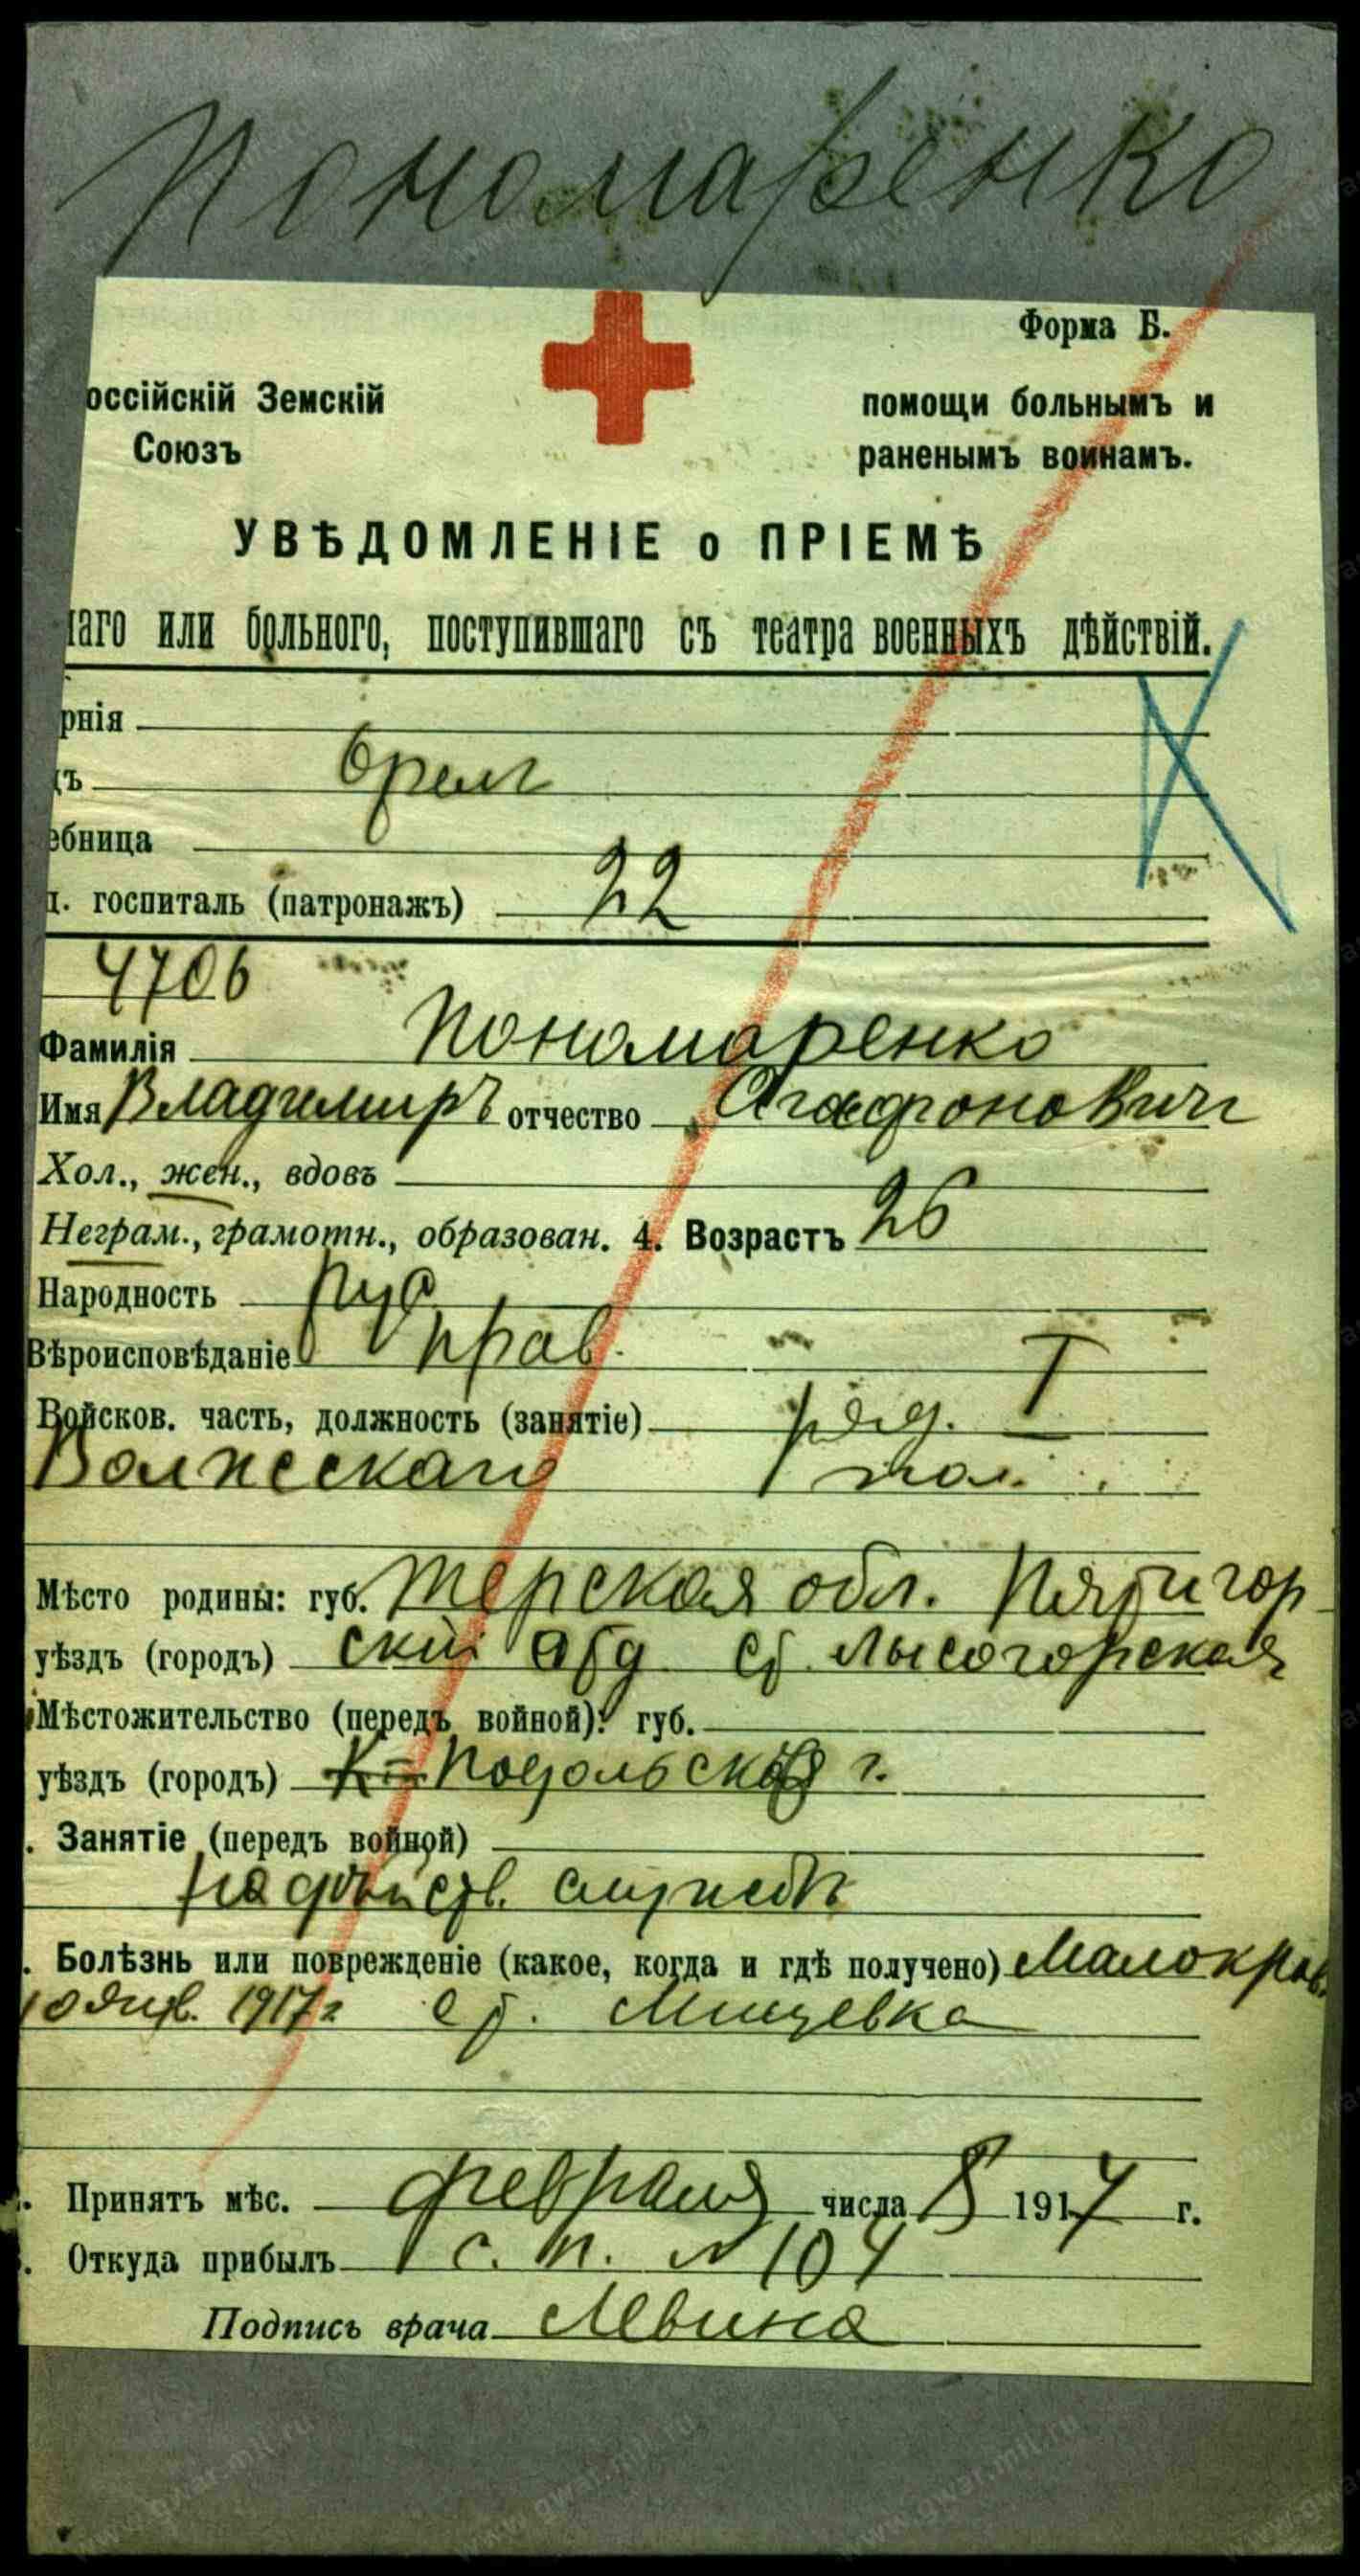 Пономаренко
Форма Б.
оссійскій Земскій
Союзъ
помощи больнымъ и
раненымъ воинамъ.
УВѢДОМЛЕНІЕ о ПРІЕМѢ
наго или больного, поступившаго съ театра военныхъ дѣйствій.
рнія
дъ Орелъ
ебница
д. госпиталь (патронажъ) 22
4706
Фамилія Пономаренко
Имя Владимиръ отчество Агафоновичъ
Хол., жен., вдовъ
Неграм., грамотн., образован. 4. Возрастъ 26
Народность рус
Вѣроисповѣданіе прав.
Войсков. часть, должность (занятіе) ряд. I
Волжскаго пол.
Мѣсто родины: губ. Терская обл. Пятигор
уѣздъ (городъ) скій отд ст. Лысогорская
Мѣстожительство (передъ войной): губ.
уѣздъ (городъ) Подольск г.
. Занятіе (передъ войной)
на дѣйств. службѣ
. Болѣзнь или поврежденіе (какое, когда и гдѣ получено) Малокров.
10 янв. 1917 г ст.
Принятъ мѣс. февраля числа 8 1917 г.
Откуда прибылъ с. п. № 104
Подпись врача Левина
www.gwar.mil.ru